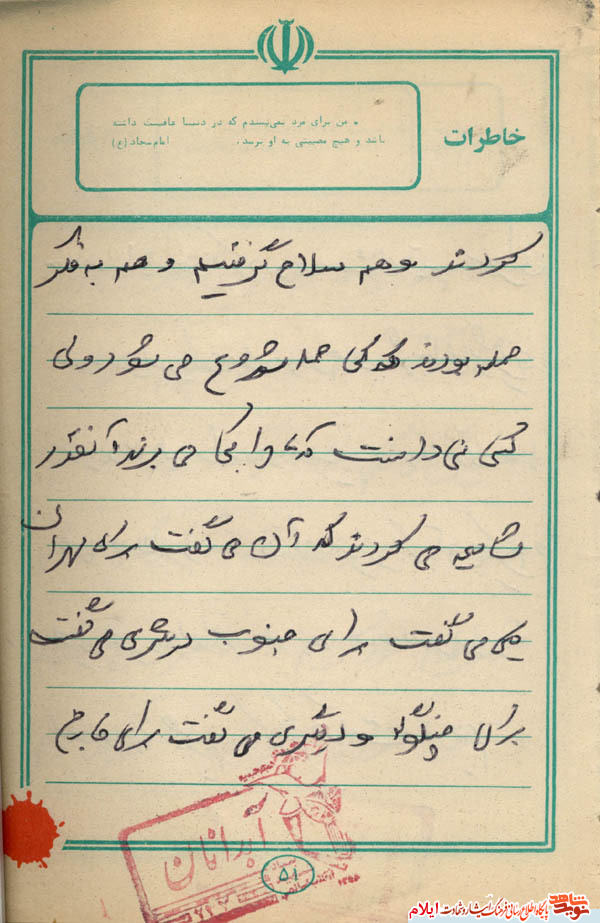 خاطرات
• من برای مرد نمی‌پسندم که در دنیا عافیت داشته
باشد و هیچ مصیبتی به او نرسد. امام سجاد (ع)
کردند و همه سلاح گرفتیم و همه به فکر
حمله بودند که کی حمله شروع می شود ولی
کسی نمی دانست که ما را کجا می برند آنقدر
شایعه می کردند که آن می گفت برای مهران
یکی می گفت برای جنوب دیگری می گفت
برای چنگوله و دیگری می گفت برای خارج
آبدانان
۵۱
نوید شاهد
ایلام